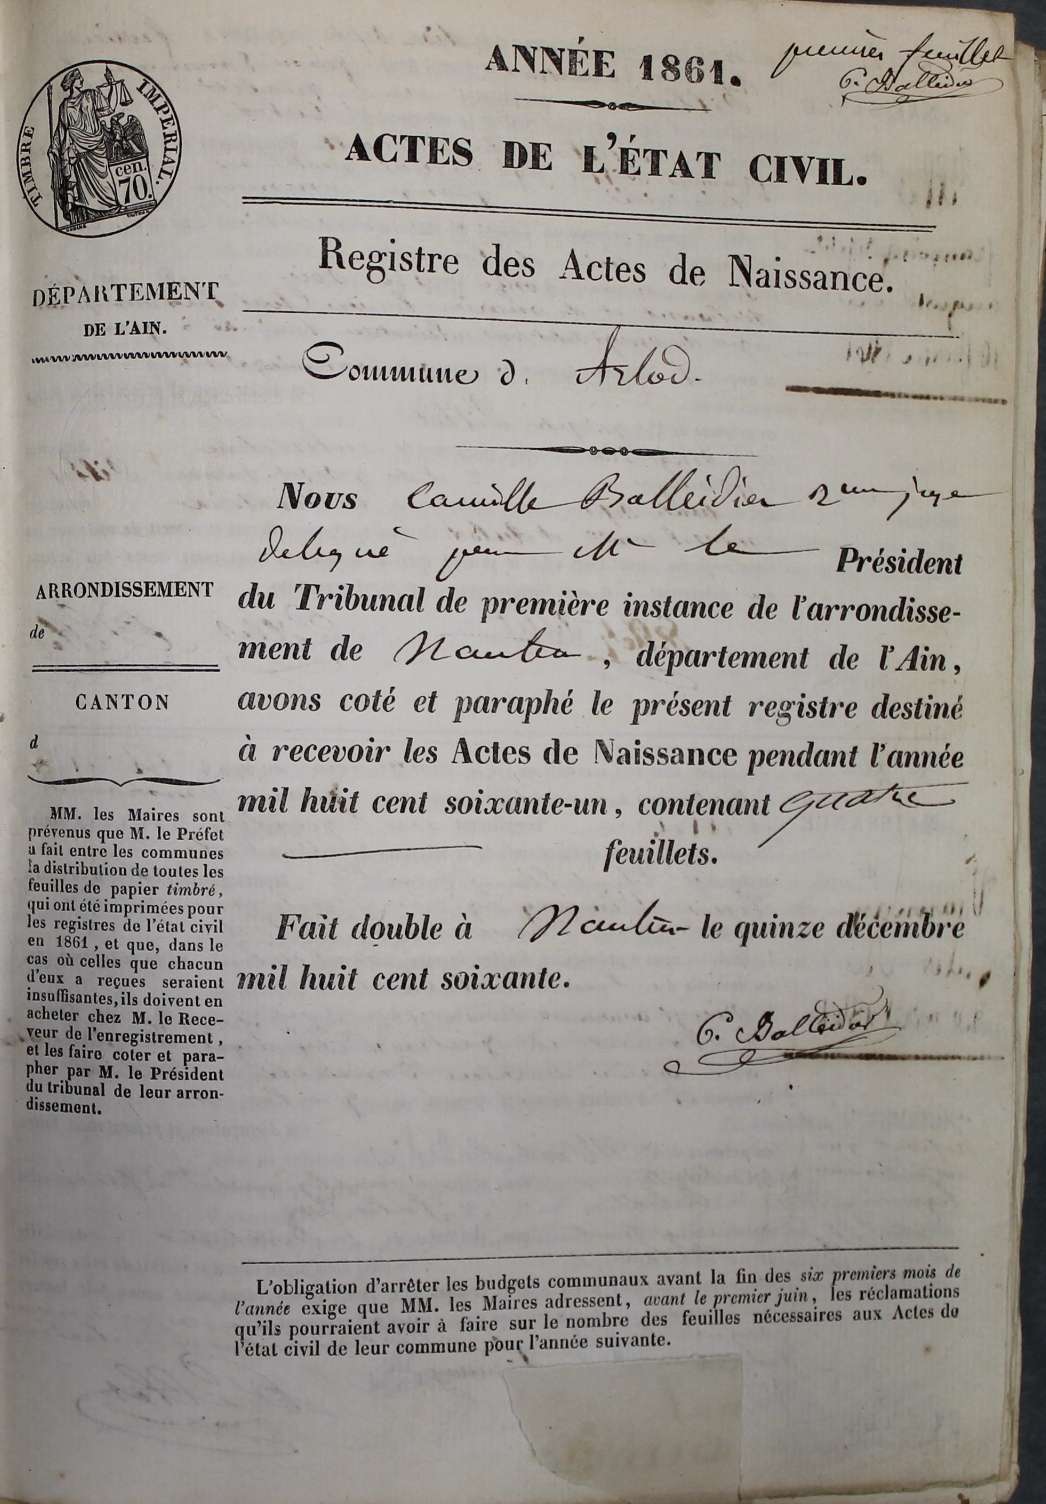 ANNÉE 1861.
premier feuillet
C. Balleidier
TIMBRE IMPÉRIAL.
cen.
70.
ACTES DE L'ÉTAT CIVIL.
Registre des Actes de Naissance.
DÉPARTEMENT
DE L'AIN.
Commune d. Arlod.
Nous Camille Balleidier juge
delegué par Mr le Président
du Tribunal de première instance de l'arrondisse-
ment de Nantua, département de l'Ain,
avons coté et paraphé le présent registre destiné
à recevoir les Actes de Naissance pendant l'année
mil huit cent soixante-un, contenant quatre
feuillets.
Fait double à Nantua le quinze décembre
mil huit cent soixante.
C. Balleidier
ARRONDISSEMENT
de
CANTON
d
MM. les Maires sont
prévenus que M. le Préfet
a fait entre les communes
la distribution de toutes les
feuilles de papier timbré,
qui ont été imprimées pour
les registres de l'état civil
en 1861, et que, dans le
cas où celles que chacun
d'eux a reçues seraient
insuffisantes, ils doivent en
acheter chez M. le Rece-
veur de l'enregistrement,
et les faire coter et para-
pher par M. le Président
du tribunal de leur arron-
dissement.
L'obligation d'arrêter les budgets communaux avant la fin des six premiers mois de
l'année exige que MM. les Maires adressent, avant le premier juin, les réclamations
qu'ils pourraient avoir à faire sur le nombre des feuilles nécessaires aux Actes de
l'état civil de leur commune pour l'année suivante.